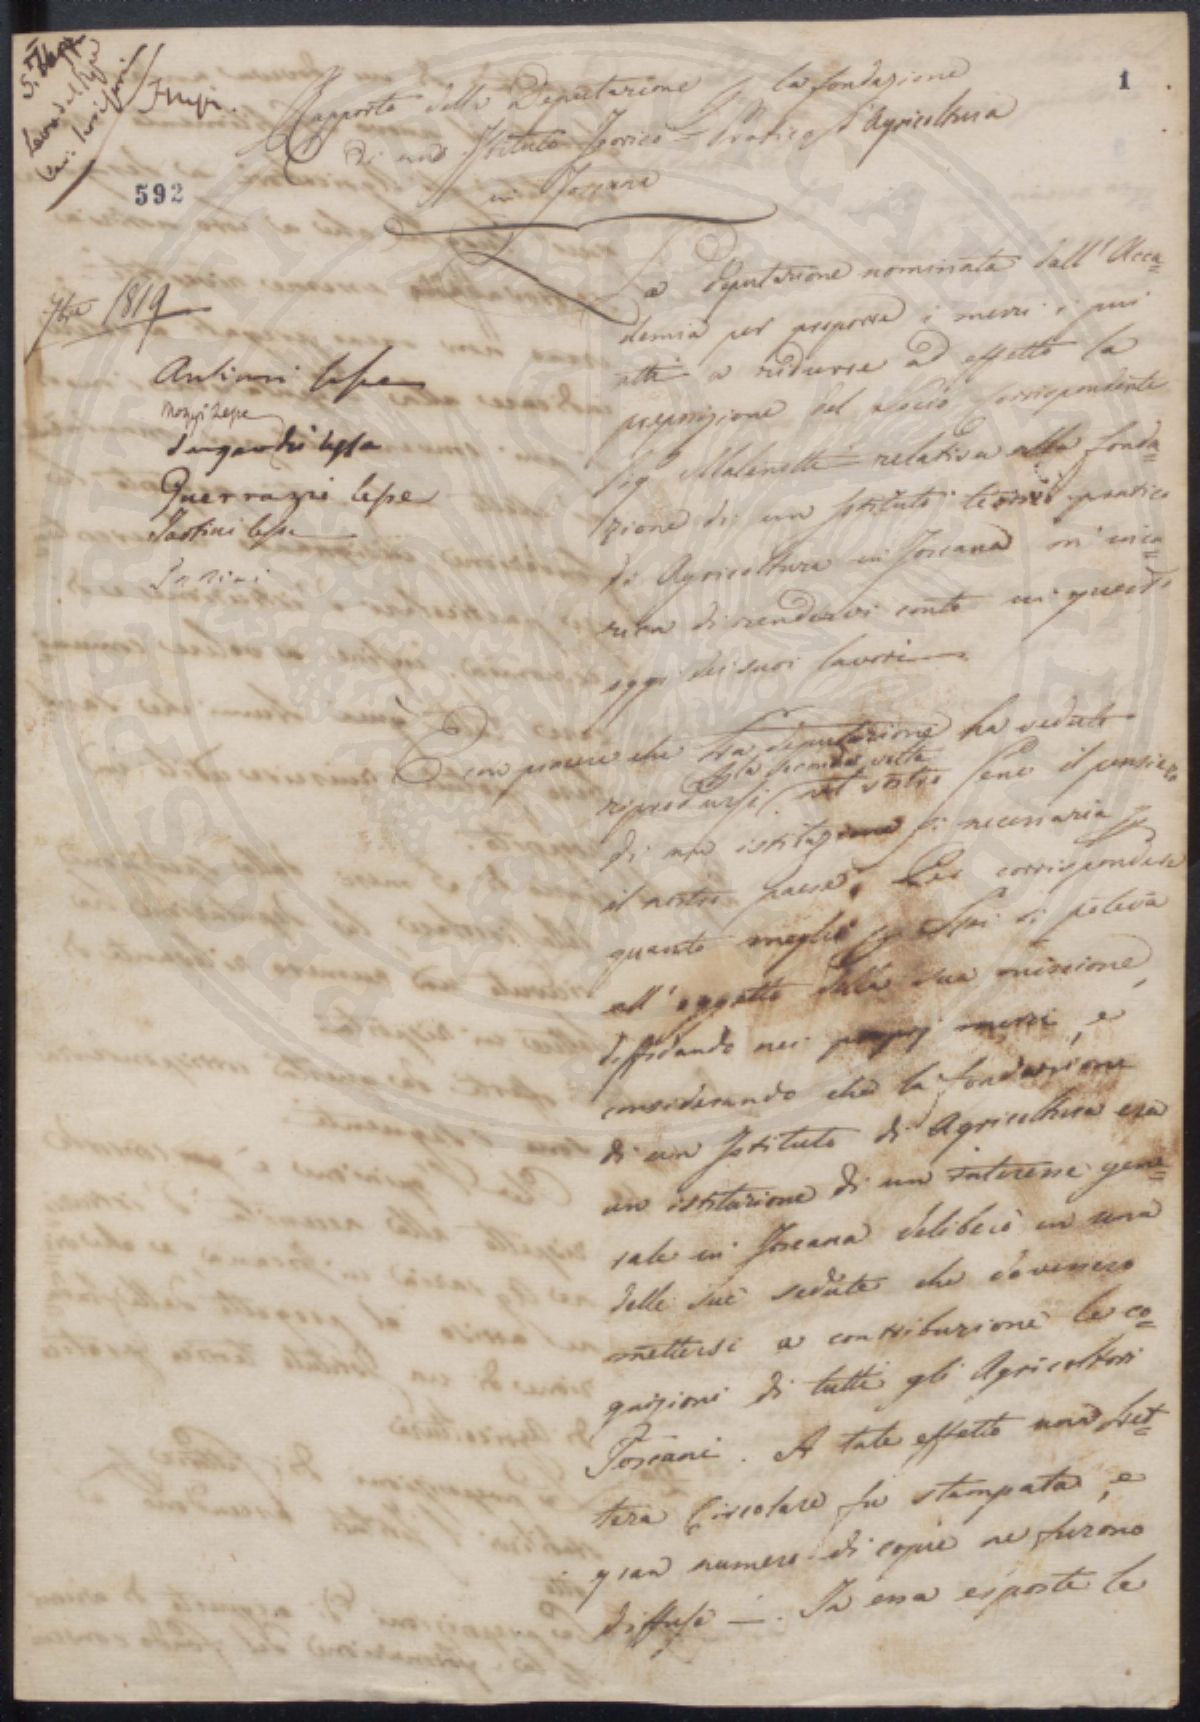 1
Rapporto della Deputazione p la fondazione
di uno Istituto Teorico = Pratico d'Agricoltura
in Toscana
592
7bre 1819
Antinori lesse
Mozzi lesse
lesse
Guerrazzi lesse
Tartini lesse
La Deputazione nominata dall'Acca=
demia per proporre i mezzi i più
atti a ridurre ad effetto la
proposizione del Socio Corrispondente
Sig. Malenotti relativa alla fonda=
zione di un Istituto teorico pratico
di Agricoltura in Toscana m'inca=
rica di rendervi conto in questo
oggi dei suoi lavori
È con piacere che la deputazione ha veduto
p la seconda volta
riprodursi nel vostro seno il pensiero
di una istituzione sì necessaria p
il nostro paese. Per corrispondere
quanto meglio p Lei si poteva
all'oggetto della sua missione,
diffidando nei proprj mezzi, e
considerando che la fondazione
di un Istituto di Agricoltura era
un istituzione di un interesse gene=
rale in Toscana deliberò in una
delle sue sedute che dovessero
mettersi a contribuzione le co=
gnizioni di tutti gli Agricoltori
Toscani. A tale effetto una Let=
tera Circolare fu stampata, e
gran numero di copie ne furono
diffuse —. In essa esposte le